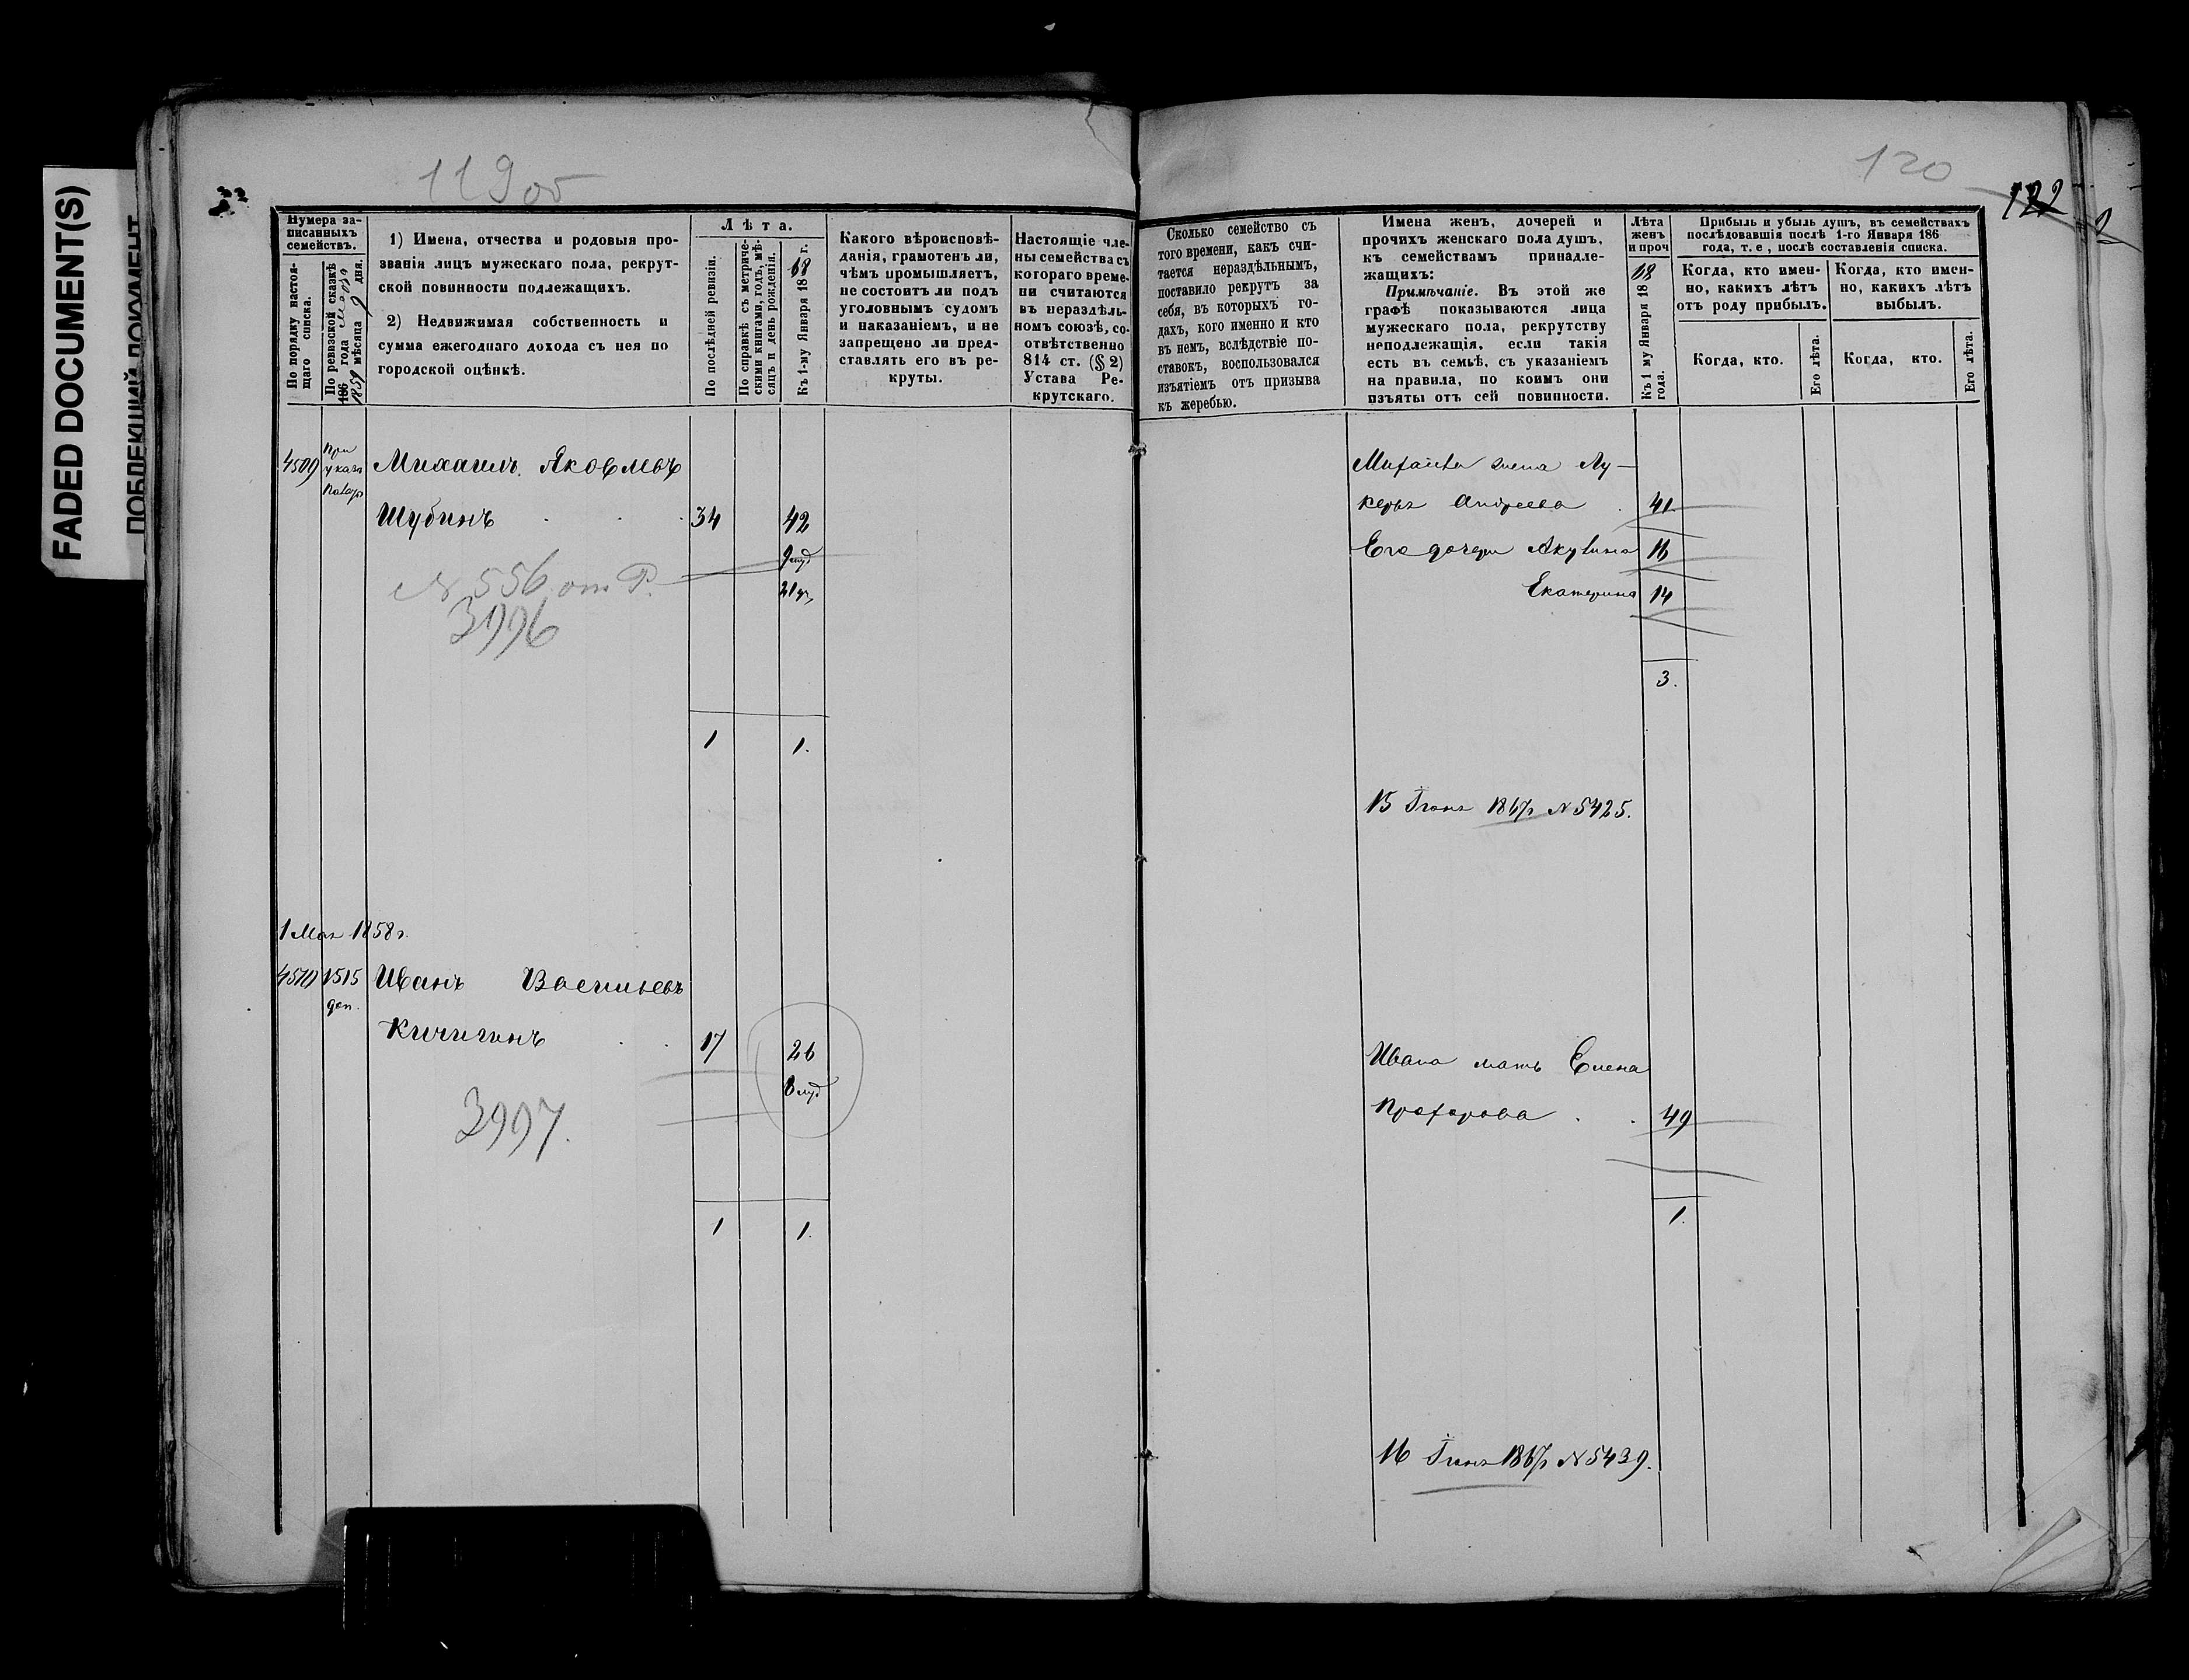 FADED DOCUMENT(S)
119 об
Нумера за-
писанныхъ
семействъ.
По порядку настоя-
щаго списка.
По ревизской сказкѣ
186 года мѣсяца дня.
1859
9
1) Имена, отчества и родовыя про-
званія лицъ мужескаго пола, рекрут-
ской повинности подлежащихъ.
2) Недвижимая собственность и
сумма ежегоднаго дохода съ нея по
городской оцѣнкѣ.
Лѣта.
По послѣдней ревизіи.
По справкѣ съ метриче-
скими книгами, годъ, мѣ-
сяцъ и день рожденія.
Къ 1-му Января 1868 г.
Какого вѣроисповѣ-
данія, грамотенъ ли,
чѣмъ промышляетъ,
не состоитъ ли подъ
уголовнымъ судомъ
и наказаніемъ, и не
запрещено ли пред-
ставлять его въ ре-
круты.
Настоящіе чле-
ны семейства съ
котораго време-
ни считаются
въ нераздѣль-
номъ союзѣ, со-
отвѣтственно
814 ст. (§ 2)
Устава Ре-
крутскаго.
4509 При указѣ Палаты
Михаилъ Яковлевъ
Шубинъ 34 42
21
N 556 от Р.
3996
1 1.
1 Мая 1858 г.
4510 1515 Иванъ Васильевъ
доп.
Кичигинъ 17 26
8
3997.
1 1.
120
122
Сколько семейство съ
того времени, какъ счи-
тается нераздѣльнымъ,
поставило рекрутъ за
себя, въ которыхъ го-
дахъ, кого именно и кто
въ немъ, вслѣдствіе по-
ставокъ, воспользовался
изъятіемъ отъ призыва
къ жеребью.
Имена женъ, дочерей и
прочихъ женскаго пола душъ,
къ семействамъ принадле-
жащихъ:
Примѣчаніе. Въ этой же
графѣ показываются лица
мужескаго пола, рекрутству
неподлежащія, если такія
есть въ семьѣ, съ указаніемъ
на правила, по коимъ они
изъяты отъ сей повинности.
Лѣта
женъ
и проч
Къ 1 му Января 1868
года.
Прибыль и убыль душъ, въ семействахъ
послѣдовавшія послѣ 1-го Января 186
года, т. е, послѣ составленія списка.
Когда, кто имен-
но, какихъ лѣтъ
отъ роду прибылъ.
Когда, кто имен-
но, какихъ лѣтъ
выбылъ.
Когда, кто.
Его лѣта.
Когда, кто.
Его лѣта.
Михаила жена Лу-
керья Андреева 41
Его дочери Акулина 16
Екатерина 14
3.
15 Іюня 1867 г N 5425.
Ивана мать Елена
Прохорова 49
1.
16 Іюня 1867 г N 5439.